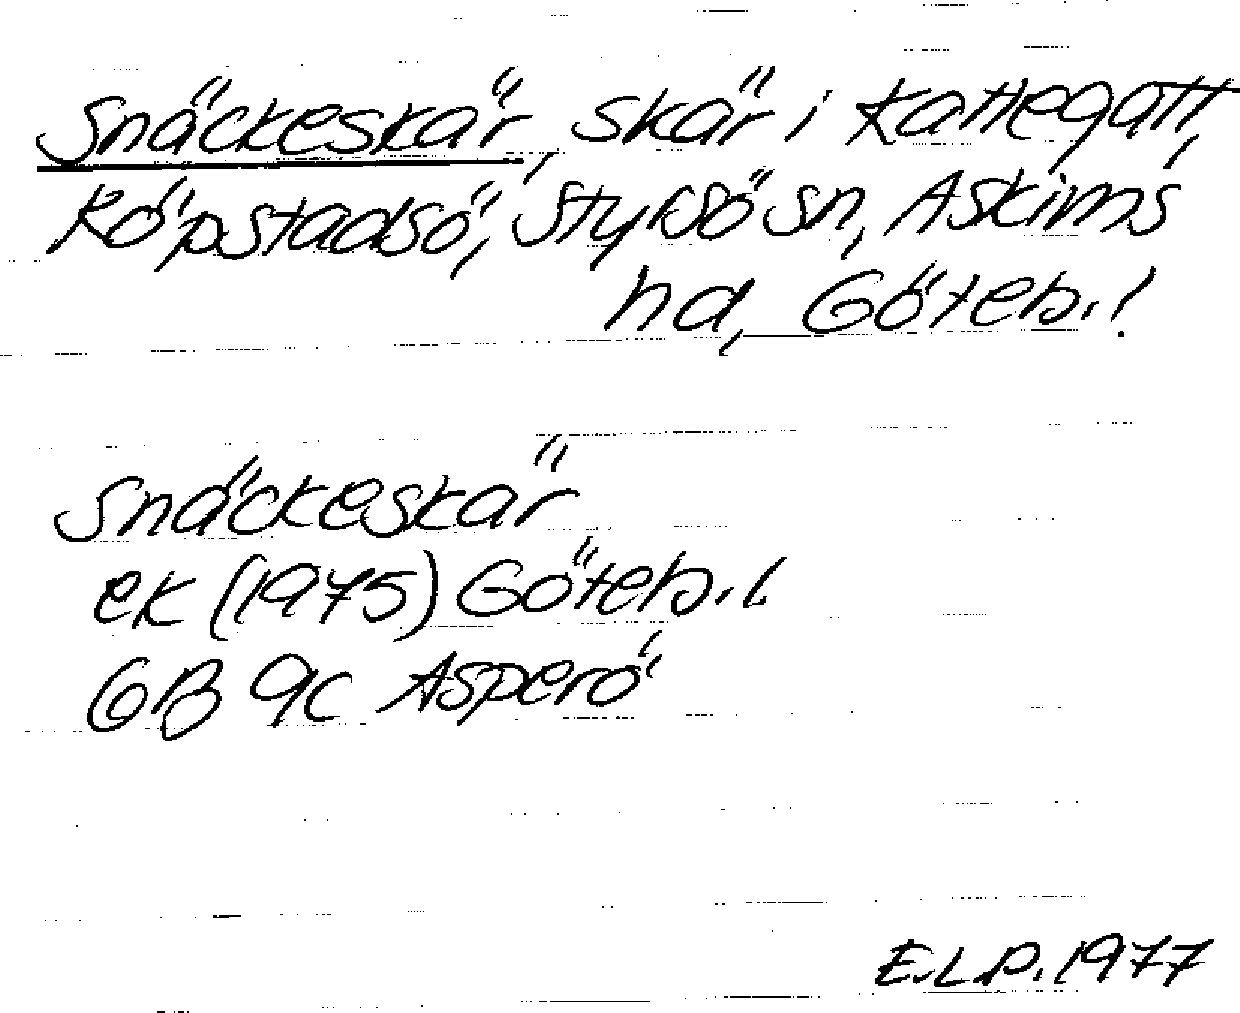 Snäckeskär, skär i Kattegatt,
Köpstadsö, Styrsö sn, Askims
hd, Göteb. l.
Snäckeskär
ek (1975) Göteb. l.
GB 9c Asperö
E.L.P. 1977